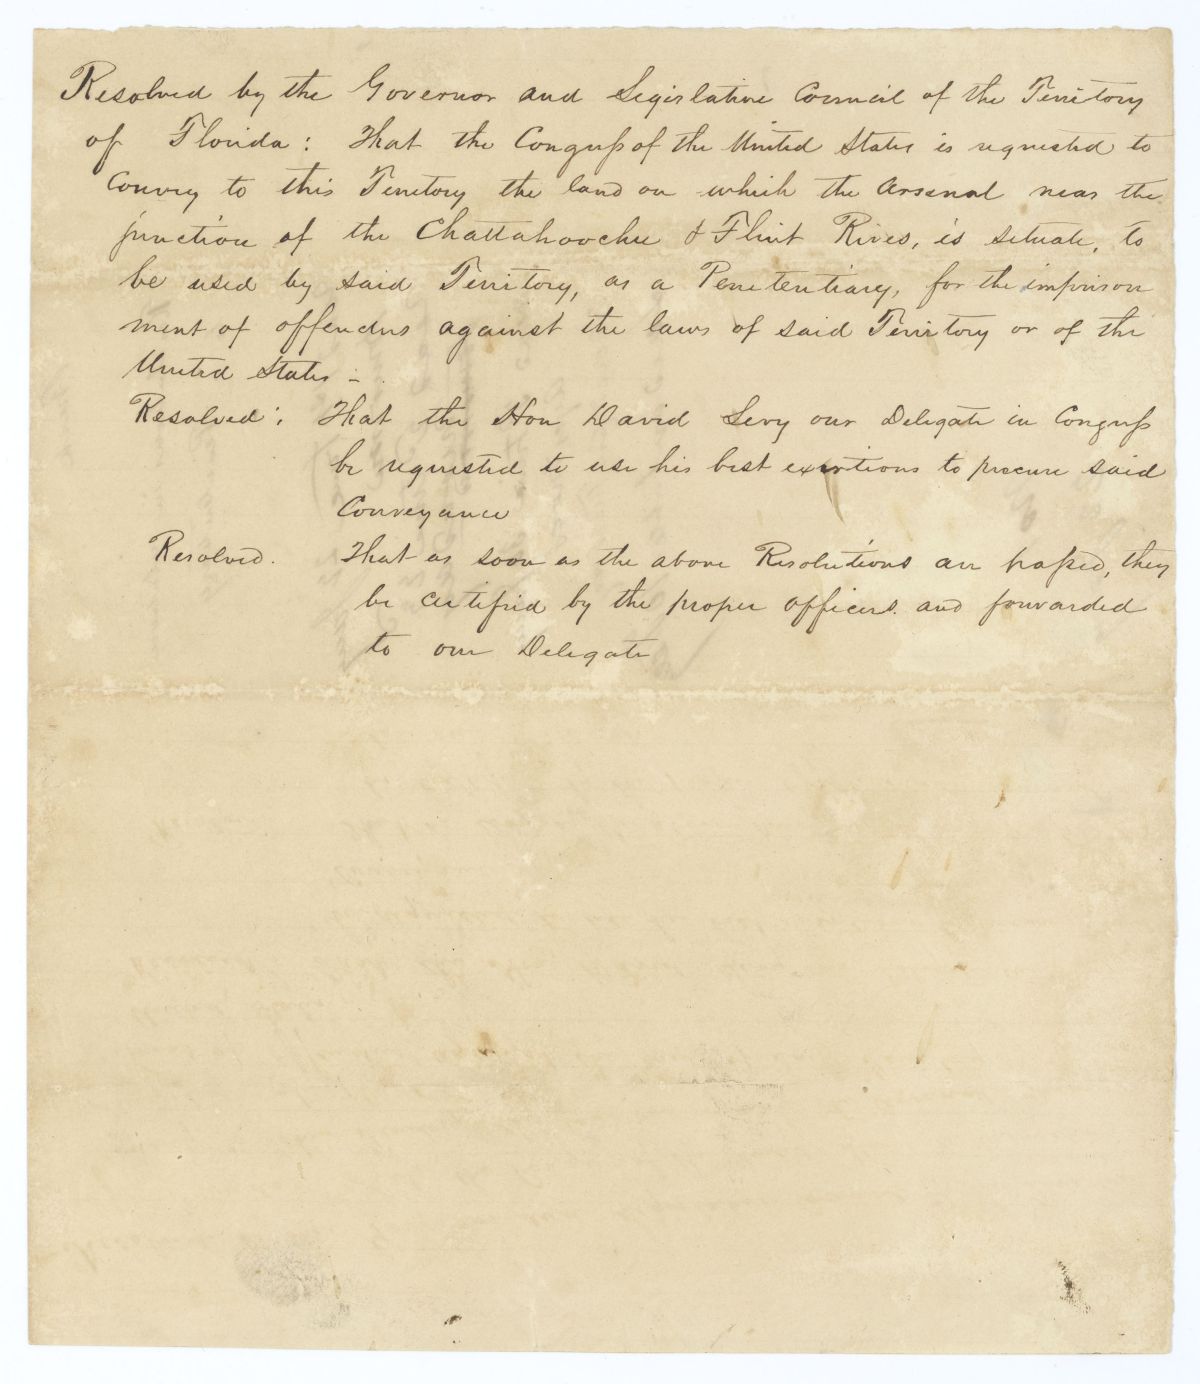 Resolved by the Governor and Legislative Council of the Territory
of Florida: That the Congress of the United States is requested to
Convey to this Territory the land on which the Arsenal near the
junction of the Chattahoochee & Flint Rives, is situate, to
be used by said Territory, as a Penetentiary, for the imprison
ment of offenders against the laws of said Territory or of the
United States -
Resolved: That the Hon David Levy our Delegate in Congress
be requested to use his best exertions to procure said
Conveyance
Resolved. That as soon as the above Resolutions are passed, they
be certified by the proper officers and forwarded
to our Delegate